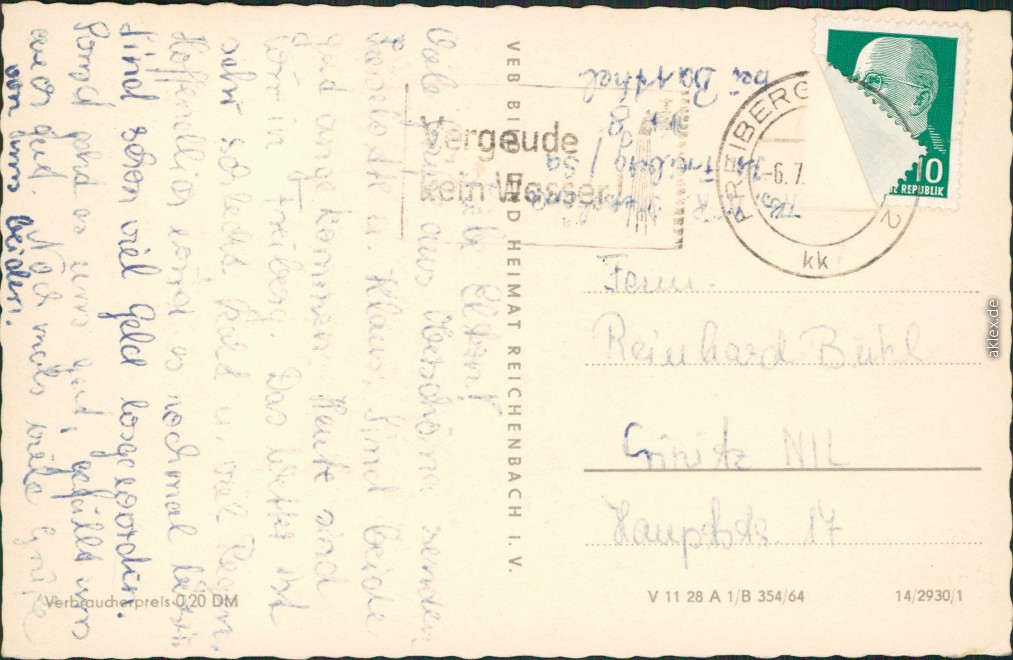 Liebe Eltern!
Viele Grüße aus Oberschöna senden
Lieselotte u. Klaus. Sind beide
gut angekommen. Heute sind
wir in Freiberg. Das Wetter ist
sehr schlecht kalt u. viel Regen.
Hoffentlich wird es nochmal besser.
Sind schon viel Geld losgeworden.
Sonst geht es uns gut, gefällt uns
auch gut. Noch mals viele Grüße
von uns beiden.
VEB BILD UND HEIMAT REICHENBACH I. V.
Vergeude
kein Wasser!
bei Barthel
Freiberg / Sa
FREIBERG
-6.7.
2
kk
10
REPUBLIK
Fam.
Reinhard Bühl
Crinitz NIL
Hauptstr. 17
Verbraucherpreis 0,20 DM
V 11 28 A 1/B 354/64
14/2930/1
aklex.de